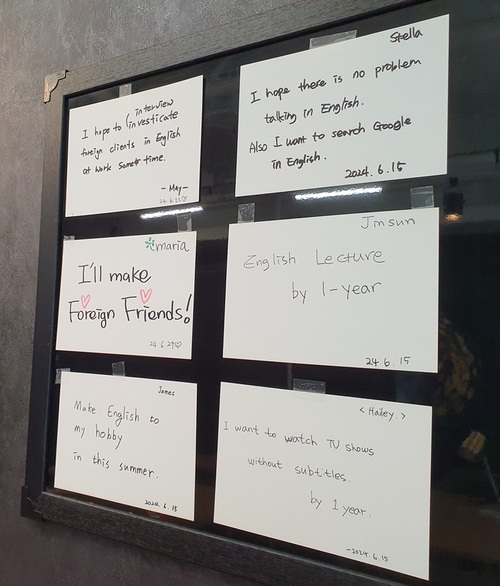 interview
I hope to ( investicate
foreign clients in English
at work some time.
-May-
24.6.22♡
Stella
I hope there is no problem
talking in English.
Also I want to search Google
in English.
2024.6.15
maria
I'll make
Foreign Friends!
24.6.29♡
Jinsun
English Lecture
by 1-year
24.6.15
James
Make English to
my hobby
in this summer.
2024.6.15
<Hailey.>
I want to watch TV shows
without subtitles.
by 1 year.
-2024.6.15